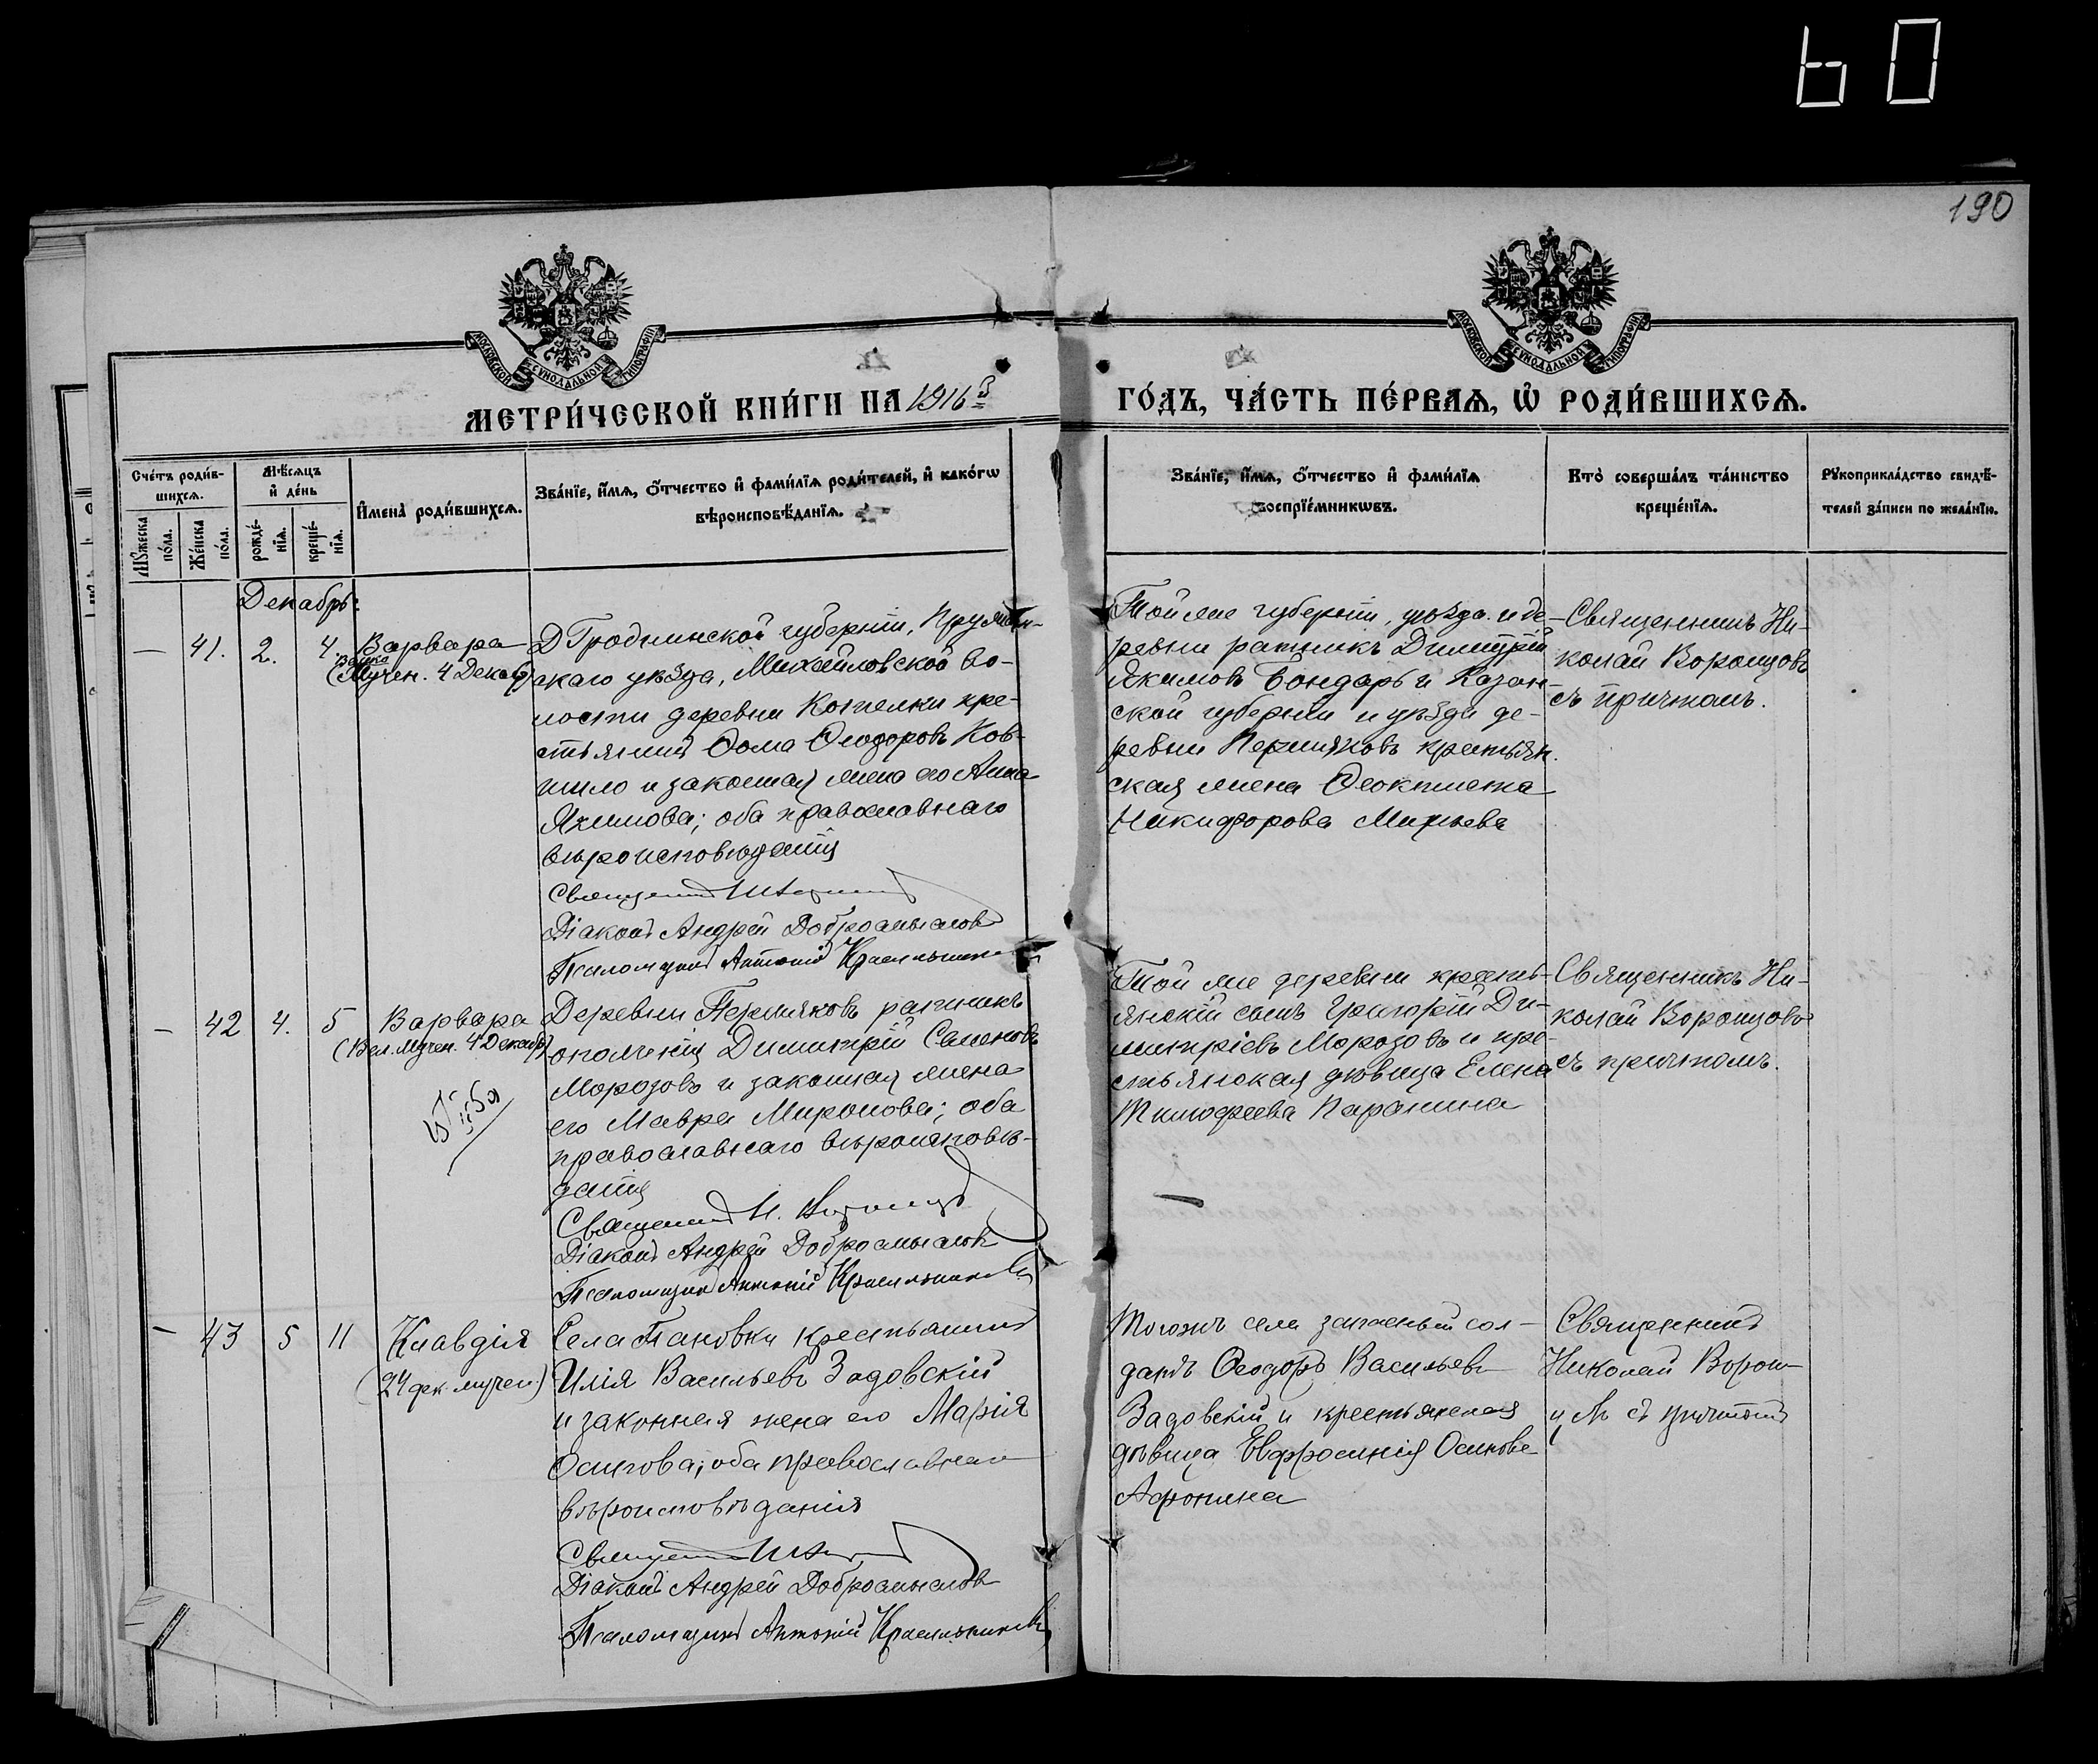 60
190
МОСКОВСКОЙ СѴНОДАЛЬНОЙ ТИПОГРАФІИ
МОСКОВСКОЙ СѴНОДАЛЬНОЙ ТИПОГРАФІИ
МЕТРИ́ЧЕСКОЙ КНИ́ГИ НА 1916й
ГО́ДЪ, ЧА́СТЬ ПЕ́РВАЯ, Ѡ҆ РОДИ́ВШИХСЯ.
Сче́тъ роди́в-
шихся.
Мꙋжеска
по́ла.
Же́нска
по́ла.
Мѣ́сяцъ
и҆ де́нь
рожде́-
нїя.
креще́-
нїя.
И҆мена̀ роди́вшихся.
Зва́нїе, и҆́мя, ѻ҆́тчество и҆ фами́лїя роди́телей, и҆ како́гѡ
вѣроисповѣ́данїя.
Зва́нїе, и҆́мя, ѻ҆́тчество и҆ фами́лїя
воспрїе́мникѡвъ.
Кто̀ соверша́лъ та́инство
креще́нїя.
Рꙋкоприкла́дство свидѣ́-
телей за́писи по жела́нїю.
Декабрь.
— 41. 2. 4. Варвара
(Мучен. 4 Декаб)
Гродненской губерніи, Пружан-
скаго уѣзда, Михайловской во-
лости деревни Котелки кре-
стьянинъ Ѳома Ѳеодоровъ Ков-
шило и законная жена его Анна
Якимова; оба православнаго
вѣроисповѣданія
Священникъ
Діаконъ Андрей Добросмысловъ
Псаломщикъ Антоній Красильников
Той же губерніи, уѣзда и де-
ревни ратникъ Димитрій
Якимовъ Бондарь и Казан-
ской губерніи и уѣзда де-
ревни Пермяковъ крестьян-
ская жена Ѳеоктиста
Никифорова
Священникъ Ни-
колай Воронцовъ
съ причтомъ.
— 42 4. 5 Варвара
(Вел. Мучен. 4 Декабр)
Деревни Пермяковъ ратникъ
ополченія Димитрій Семеновъ
Морозовъ и законная жена
его Мавра Миронова; оба
православнаго вѣроисповѣ-
данія
Священникъ Н. Воронцовъ
Діаконъ Андрей Добросмысловъ
Псаломщикъ Антоній Красильников
Той же деревни кресть-
янскій сынъ Григорій Ди-
митріевъ Морозовъ и кре-
стьянская дѣвица Елена
Тимофеева Паранина
Священникъ Ни-
колай Воронцовъ
съ причтомъ.
— 43 5 11 Клавдія
(24 дек. мучен.)
Села Пановки крестьянинъ
Илія Васильевъ Задовскій
и законная жена его Марія
Осипова; оба православнаго
вѣроисповѣданія
Священникъ
Діаконъ Андрей Добросмысловъ
Псаломщикъ Антоній Красильников
Тогожъ села запасный сол-
датъ Ѳеодоръ Васильевъ
Задовскій и крестьянская
дѣвица Евфросинія Осипова
Афонина
Священникъ
Николай Ворон-
съ причтомъ